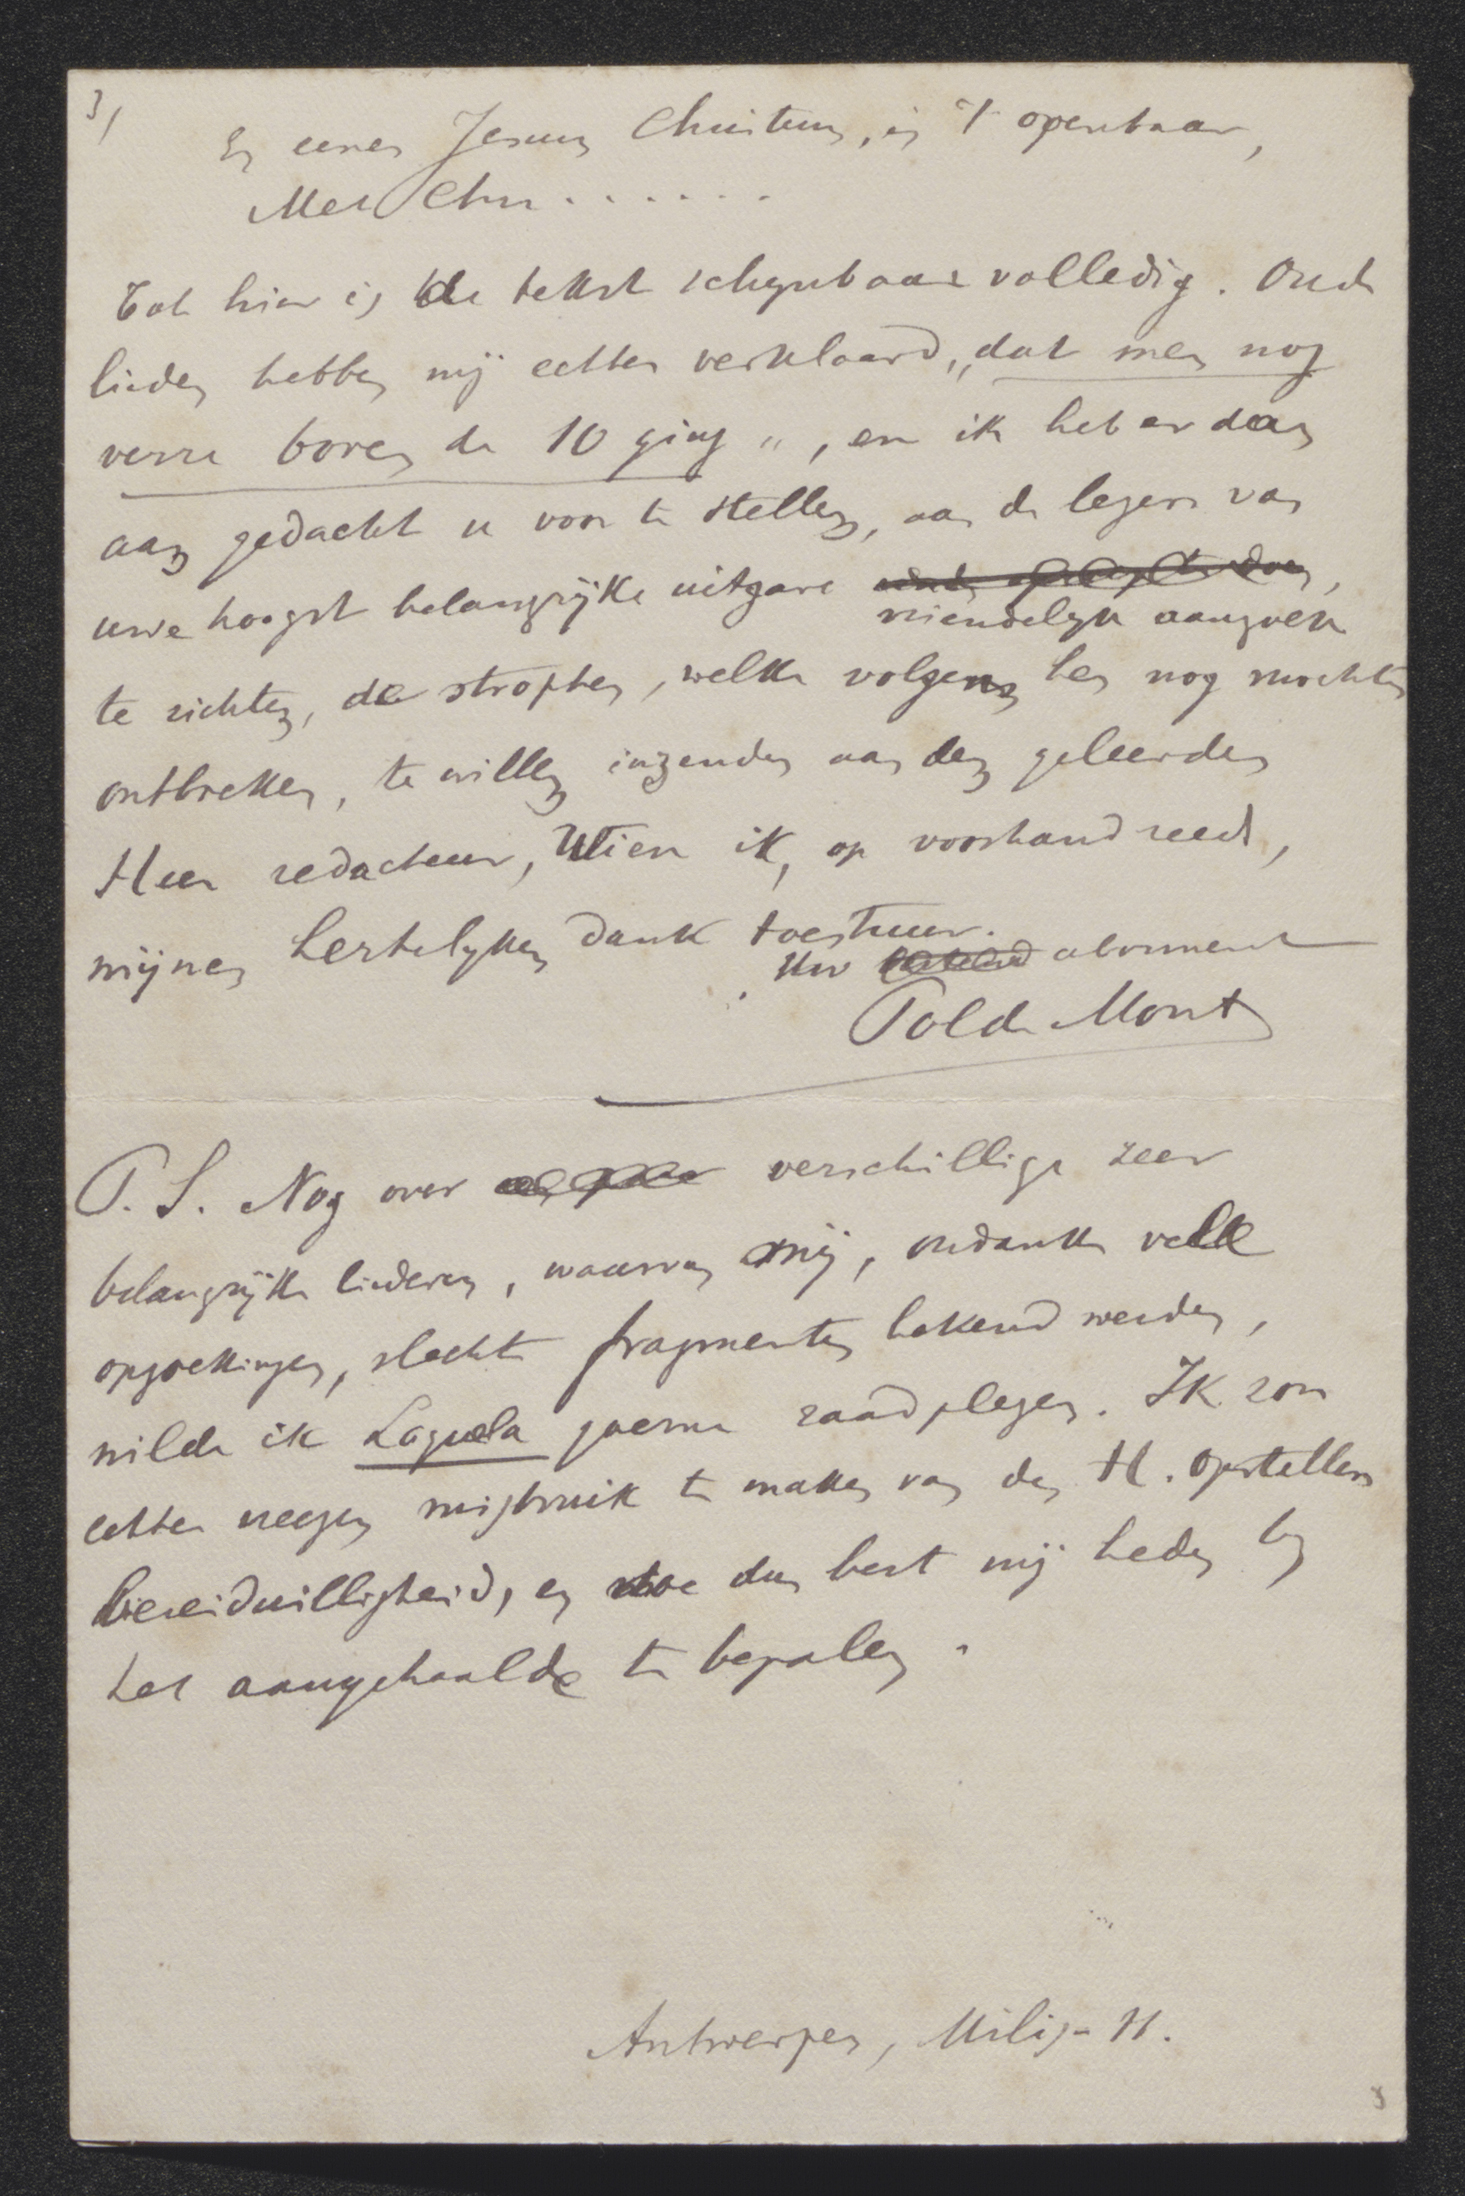 3/
En eenen Jesum Christum, is 't openbaar,
Met Chr.......
Tot hier is de tekst schynbaar volledig. Oude
lieden hebben mij echter verklaard, „dat men nog
verre boven de 10 ging", en ik heb er dan
aan gedacht u voor te stellen, aan de lezers van
uwe hoogst belangrijke uitgave
vriendelyk aanzoek
te richten, de strophen, welke volgens hen nog mochten
ontbreken, te willen inzenden aan den geleerden
Heer redacteur, Wien ik, op voorhand reeds,
mijnen hertelyken dank toestuur.
Uw abonnent
Pol de Mont
P. S. Nog over verschillige zeer
belangrijke liederen, waarvan mij, ondanks vele
opzoekingen, slechts fragmenten bekend werden,
wilde ik Loquela gaerne raadplegen. Ik zou
echter vreezen misbruik te maken van des H. Opstellers
bereidwilligheid, en doe dus best mij heden by
het aangehaalde te bepalen.
Antwerpen, Milis-H.